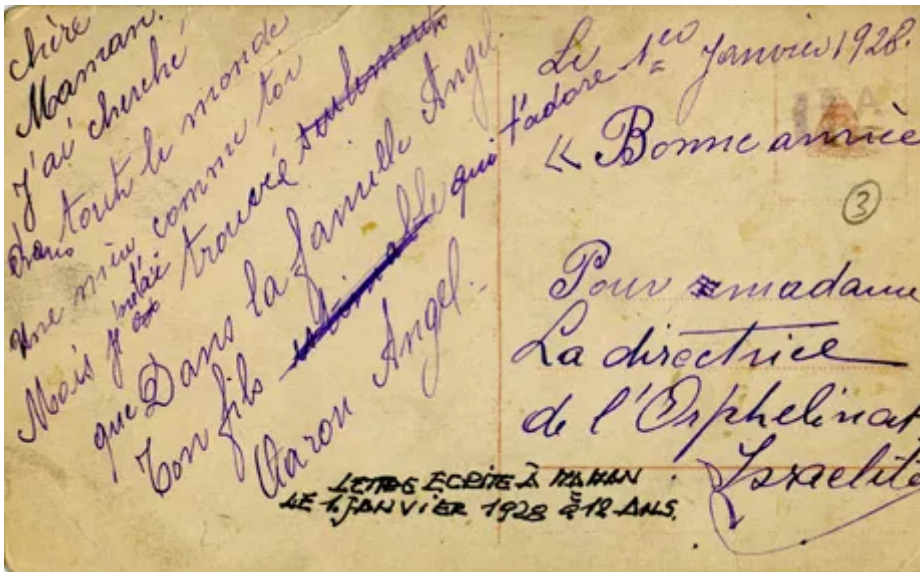 Chère
Maman.
J'ai cherché
dans tout le monde
une mère comme toi
Mais je n'ai trouvé
que Dans la famille Angel.
Ton fils qui t'adore
Aaron Angel.
Le 1er Janvier 1928.
« Bonne année
3
Pour madame
La directrice
de l'Orphelinat
Israelite
LETTRE ECRITE À MAMAN
LE 1 JANVIER 1928 à 12 ANS.